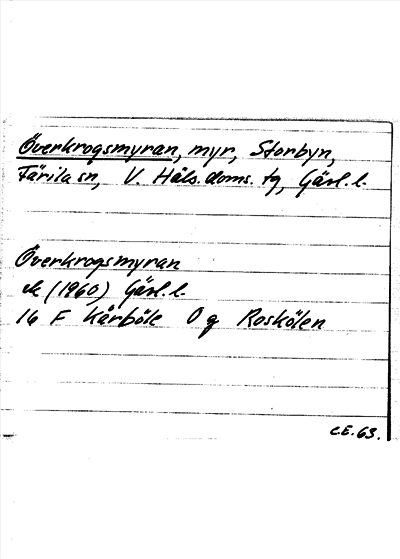 Överkrogsmyran, myr, Storbyn,
Färila sn, V. Häls. doms. tg, Gävl. l.
Överkrogsmyran
ek (1960) Gävl. l.
16 F Kårböle O g Roskölen
C.E. 63.